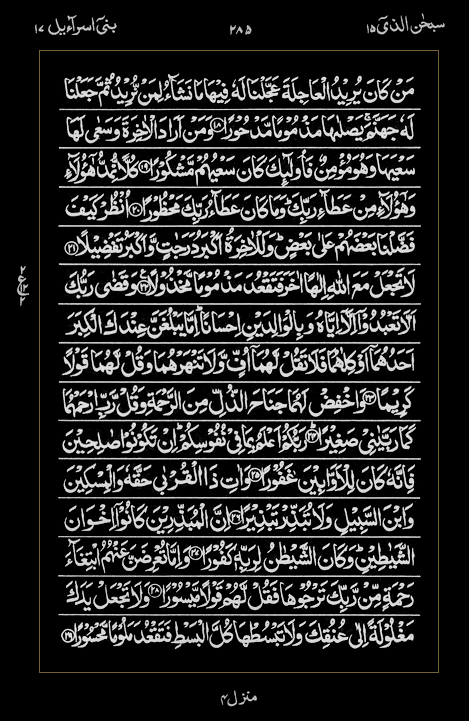 سبحٰن الذیٓ ۱۵
۲۸۵
بنیٓ اسرآءیل ۱۷
مَنْ كَانَ يُرِيْدُ الْعَاجِلَةَ عَجَّلْنَا لَهٗ فِيْهَا مَا نَشَآءُ لِمَنْ نُّرِيْدُ ثُمَّ جَعَلْنَا
لَهٗ جَهَنَّمَ ۚ يَصْلٰىهَا مَذْمُوْمًا مَّدْحُوْرًا ۝۱۸ وَمَنْ اَرَادَ الْاٰخِرَةَ وَسَعٰى لَهَا
سَعْيَهَا وَهُوَ مُؤْمِنٌ فَاُولٰٓئِكَ كَانَ سَعْيُهُمْ مَّشْكُوْرًا ۝۱۹ كُلًّا نُّمِدُّ هٰٓؤُلَآءِ
وَهٰٓؤُلَآءِ مِنْ عَطَآءِ رَبِّكَ ؕ وَمَا كَانَ عَطَآءُ رَبِّكَ مَحْظُوْرًا ۝۲۰ اُنْظُرْ كَيْفَ
فَضَّلْنَا بَعْضَهُمْ عَلٰى بَعْضٍ ؕ وَلَلْاٰخِرَةُ اَكْبَرُ دَرَجٰتٍ وَّاَكْبَرُ تَفْضِيْلًا ۝۲۱
لَا تَجْعَلْ مَعَ اللّٰهِ اِلٰهًا اٰخَرَ فَتَقْعُدَ مَذْمُوْمًا مَّخْذُوْلًا ۝۲۲ وَقَضٰى رَبُّكَ
۲ ع ۱۲ ۲
اَلَّا تَعْبُدُوْٓا اِلَّآ اِيَّاهُ وَبِالْوَالِدَيْنِ اِحْسَانًا ؕ اِمَّا يَبْلُغَنَّ عِنْدَكَ الْكِبَرَ
اَحَدُهُمَآ اَوْ كِلٰهُمَا فَلَا تَقُلْ لَّهُمَآ اُفٍّ وَّلَا تَنْهَرْهُمَا وَقُلْ لَّهُمَا قَوْلًا
كَرِيْمًا ۝۲۳ وَاخْفِضْ لَهُمَا جَنَاحَ الذُّلِّ مِنَ الرَّحْمَةِ وَقُلْ رَّبِّ ارْحَمْهُمَا
كَمَا رَبَّيٰنِيْ صَغِيْرًا ۝۲۴ رَبُّكُمْ اَعْلَمُ بِمَا فِيْ نُفُوْسِكُمْ ؕ اِنْ تَكُوْنُوْا صٰلِحِيْنَ
فَاِنَّهٗ كَانَ لِلْاَوَّابِيْنَ غَفُوْرًا ۝۲۵ وَاٰتِ ذَا الْقُرْبٰى حَقَّهٗ وَالْمِسْكِيْنَ
وَابْنَ السَّبِيْلِ وَلَا تُبَذِّرْ تَبْذِيْرًا ۝۲۶ اِنَّ الْمُبَذِّرِيْنَ كَانُوْٓا اِخْوَانَ
الشَّيٰطِيْنِ ؕ وَكَانَ الشَّيْطٰنُ لِرَبِّهٖ كَفُوْرًا ۝۲۷ وَاِمَّا تُعْرِضَنَّ عَنْهُمُ ابْتِغَآءَ
رَحْمَةٍ مِّنْ رَّبِّكَ تَرْجُوْهَا فَقُلْ لَّهُمْ قَوْلًا مَّيْسُوْرًا ۝۲۸ وَلَا تَجْعَلْ يَدَكَ
مَغْلُوْلَةً اِلٰى عُنُقِكَ وَلَا تَبْسُطْهَا كُلَّ الْبَسْطِ فَتَقْعُدَ مَلُوْمًا مَّحْسُوْرًا ۝۲۹
منزل ۴